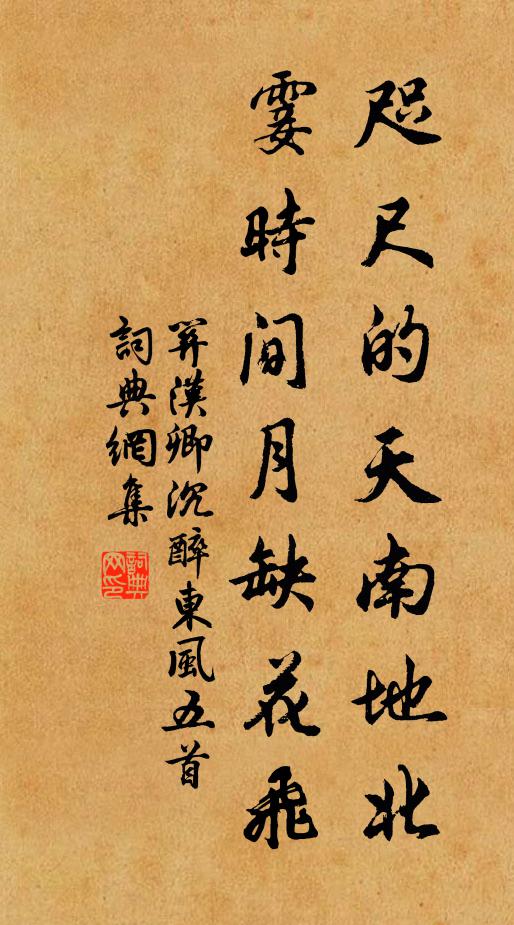 咫尺的天南地北
霎時間月缺花飛
關漢卿沉醉東風五首
詞典網集
詞典网印